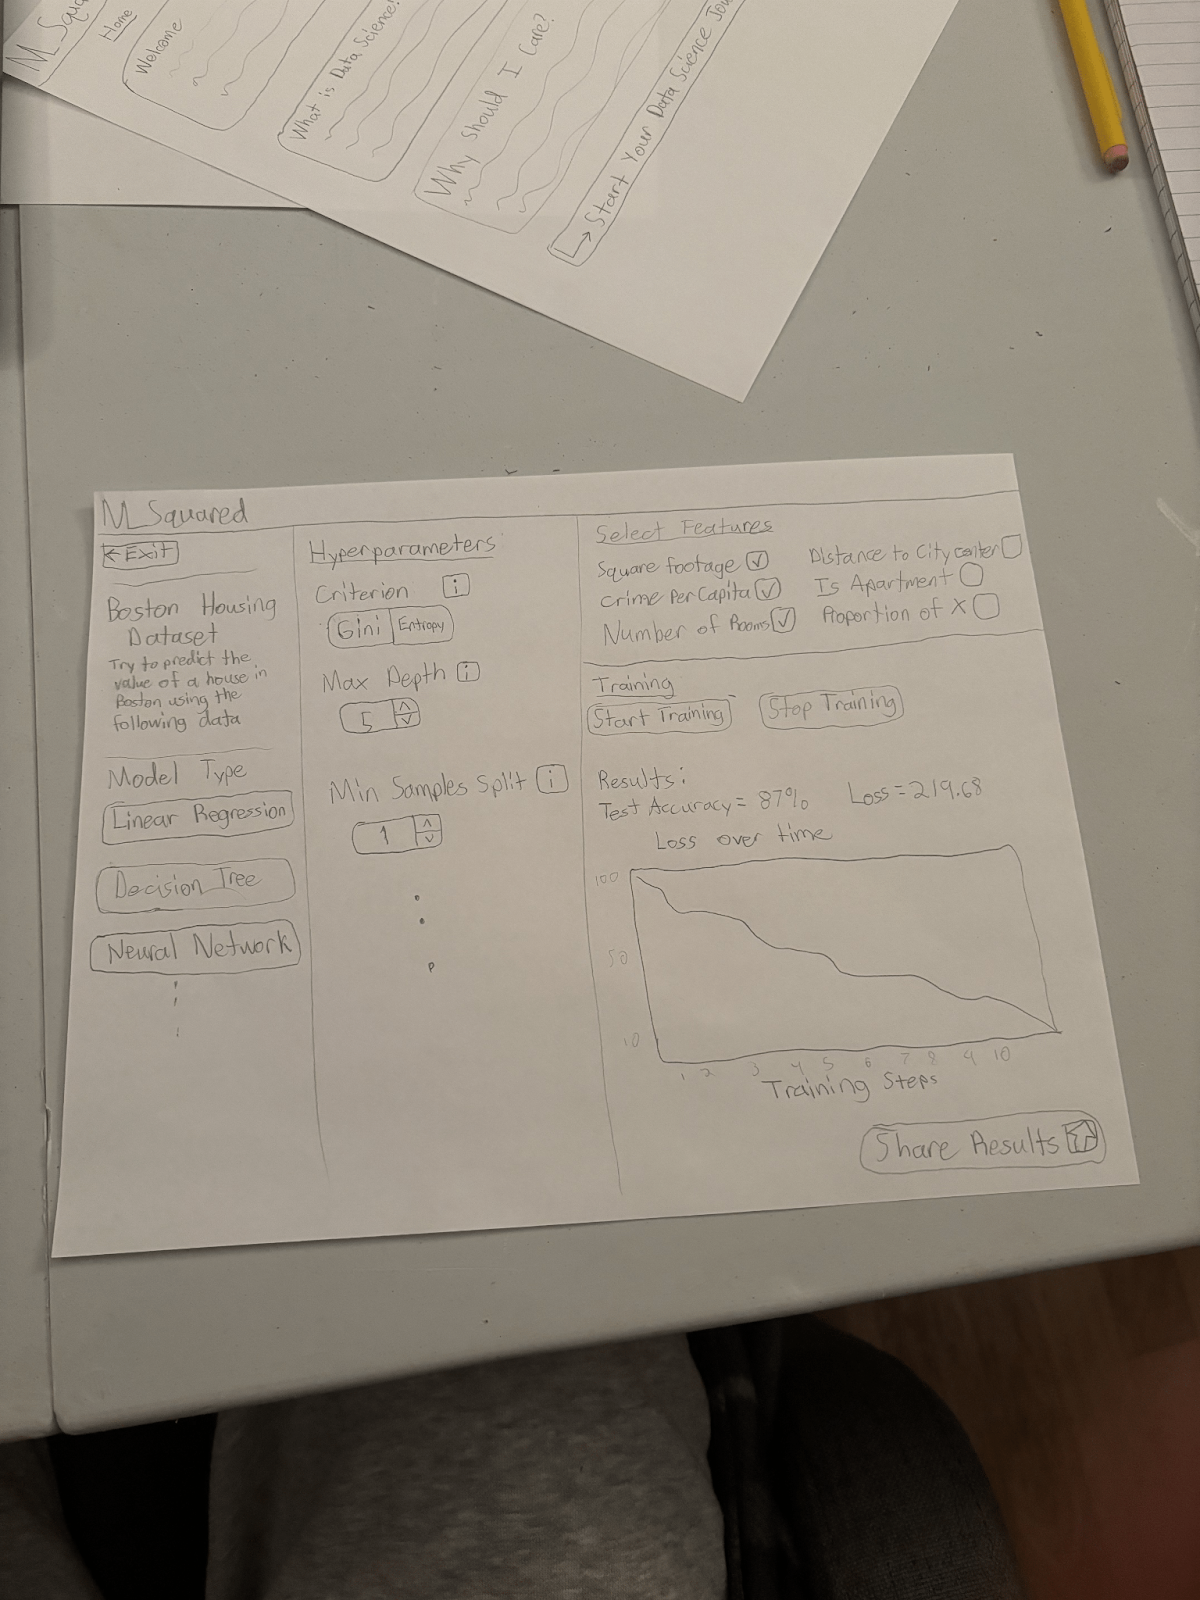 M_Squa
Home
Welcome
What is Data Science?
Why Should I Care?
Start Your Data Science Jou
M_Squared
← Exit
Boston Housing
Dataset
Try to predict the
value of a house in
Boston using the
following data
Model Type
Linear Regression
Decision Tree
Neural Network
Hyperparameters
Criterion i
Gini Entropy
Max Depth i
5
Min Samples Split i
1
Select Features
Square footage
Distance to City center
Crime Per Capita
Is Apartment
Number of Rooms
Proportion of X
Training
Start Training
Stop Training
Results:
Test Accuracy = 87%
Loss = 219.68
Loss over time
100
50
10
1 2 3 4 5 6 7 8 9 10
Training Steps
Share Results